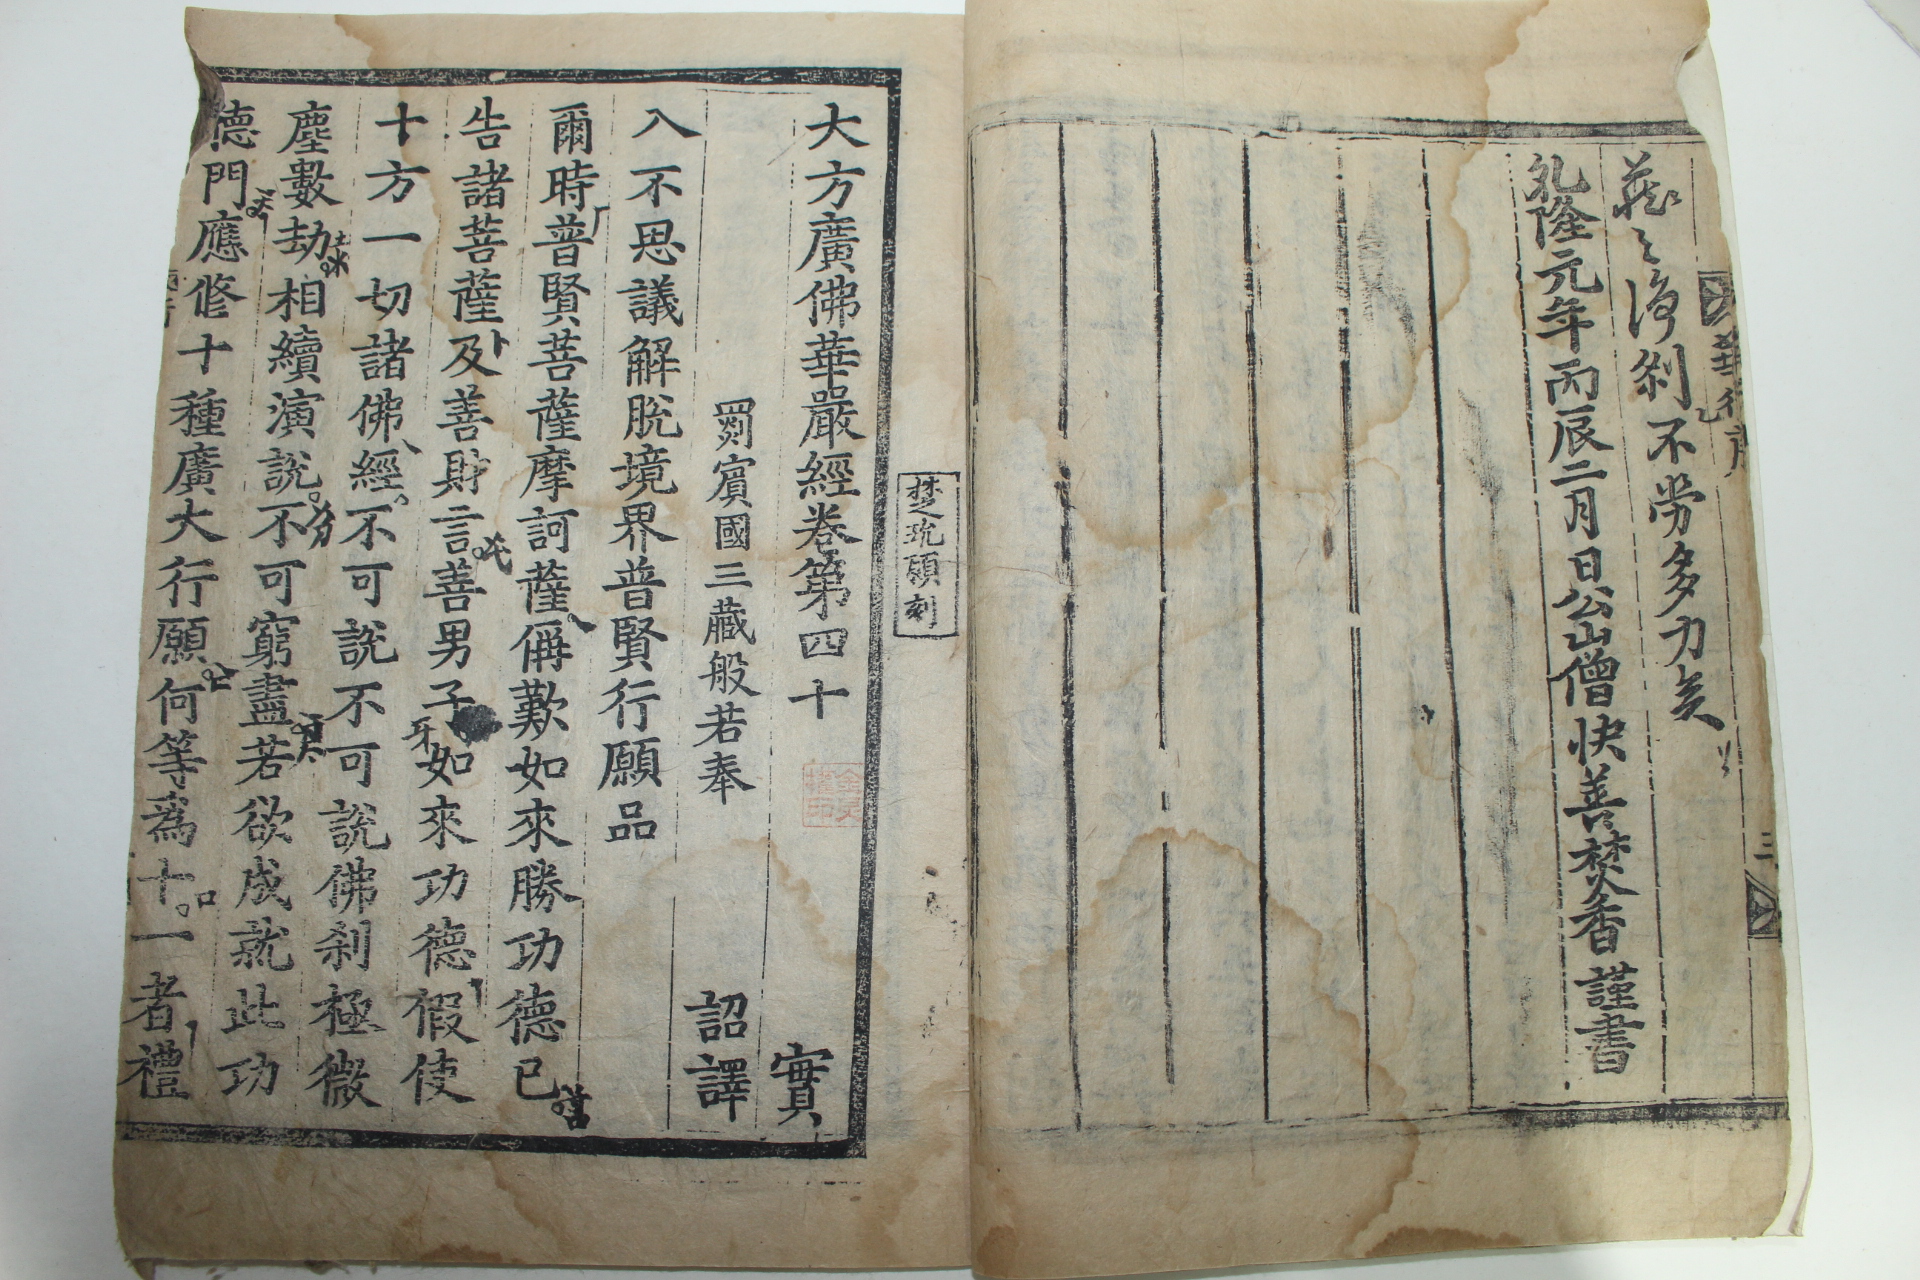 華行序 三
之淨刹不劳多力矣
乹隆元年丙辰二月日公山僧快善焚香謹書
楚玧願刻
大方廣佛華嚴經卷第四十 實
罽賓國三藏般若奉 詔譯
入不思議解脫境界普賢行願品
爾時普賢菩薩摩訶薩偁歎如來勝功德已
告諸菩薩及善財言善男子如來功德假使
十方一切諸佛經不可說不可說佛刹極微
塵數劫相續演說不可窮盡若欲成就此功
德門應修十種廣大行願何等爲十一者禮